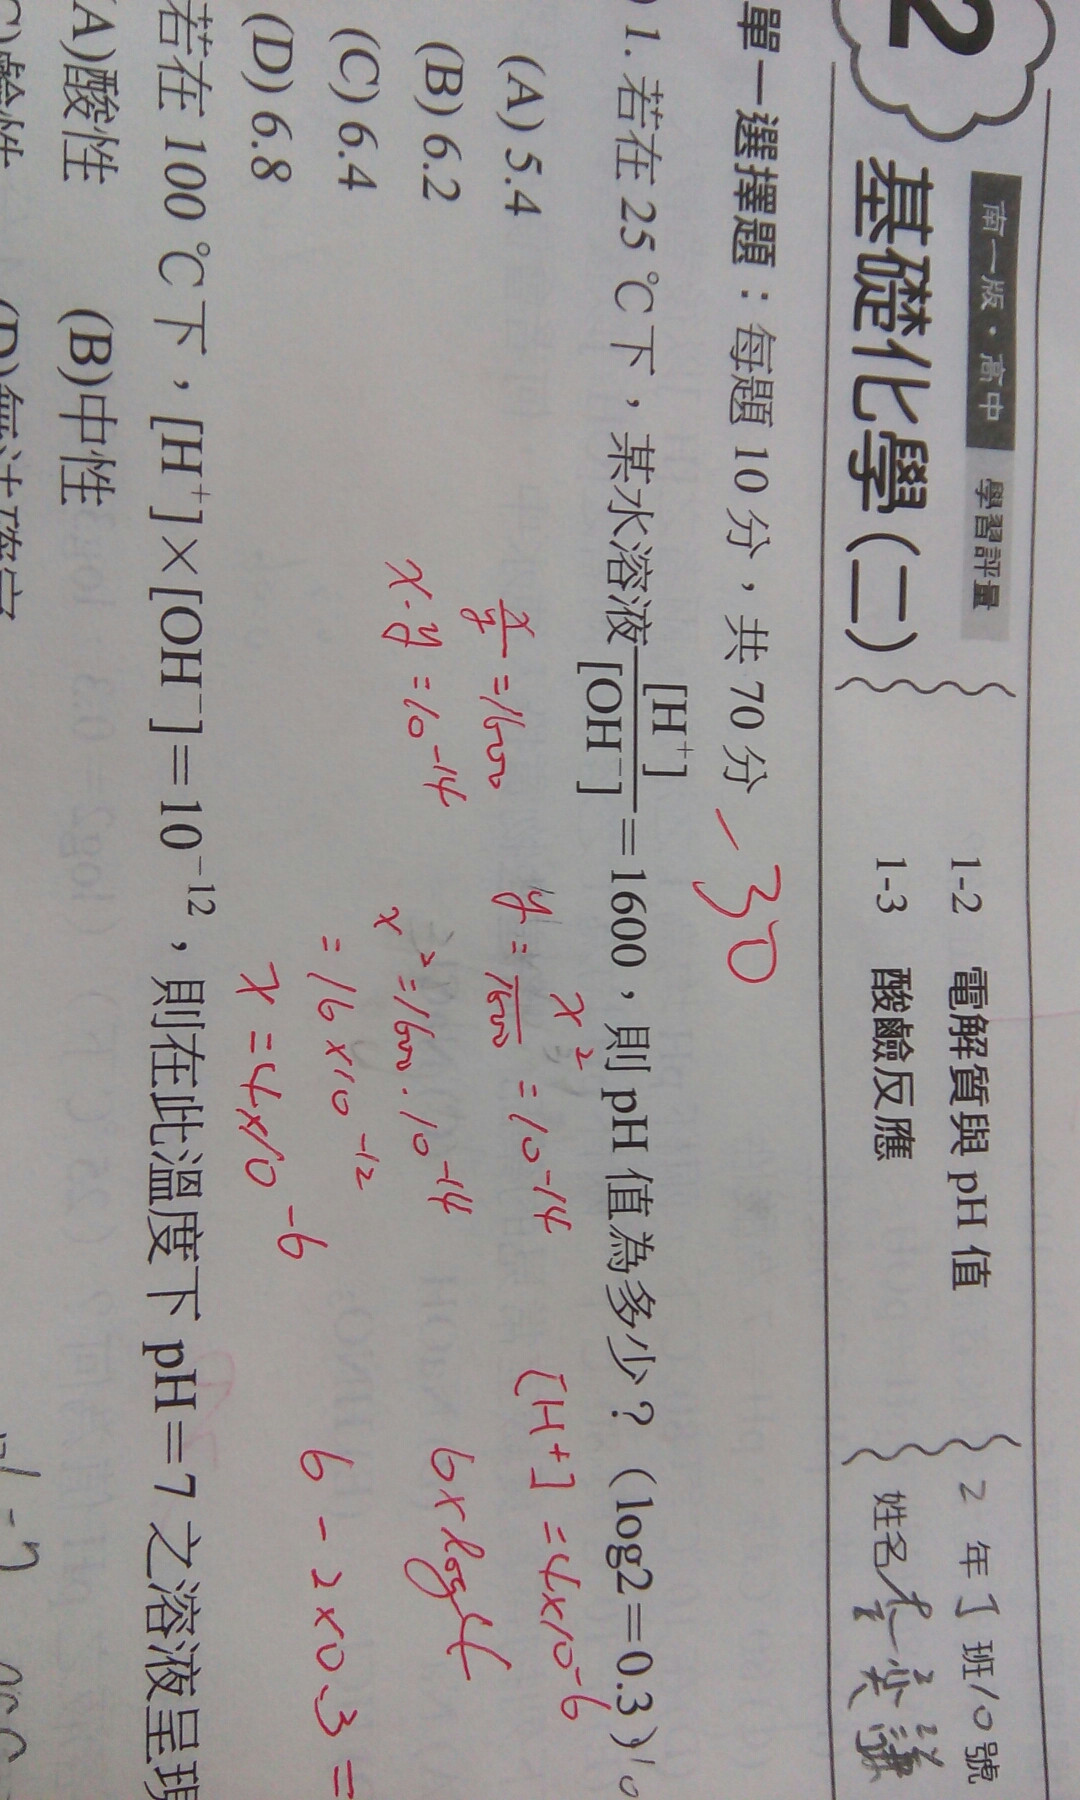 2
南一版·高中 學習評量
基礎化學(二)
1-2 電解質與 pH 值
1-3 酸鹼反應
2 年 1 班 10 號
姓名
單一選擇題：每題 10 分，共 70 分 -30
) 1. 若在 25 ℃下，某水溶液 [H⁺]/[OH⁻] =1600，則 pH 值為多少？（log2=0.3）
(A) 5.4
(B) 6.2
(C) 6.4
(D) 6.8
x/y = 1600
x·y = 10⁻¹⁴
y = x²/1600 = 10⁻¹⁴
x² = 1600·10⁻¹⁴
= 16×10⁻¹²
x = 4×10⁻⁶
[H⁺] = 4×10⁻⁶
6×log4
6-2×0.3=
若在 100 ℃下，[H⁺]×[OH⁻]=10⁻¹²，則在此溫度下 pH=7 之溶液呈現
(A)酸性 (B)中性